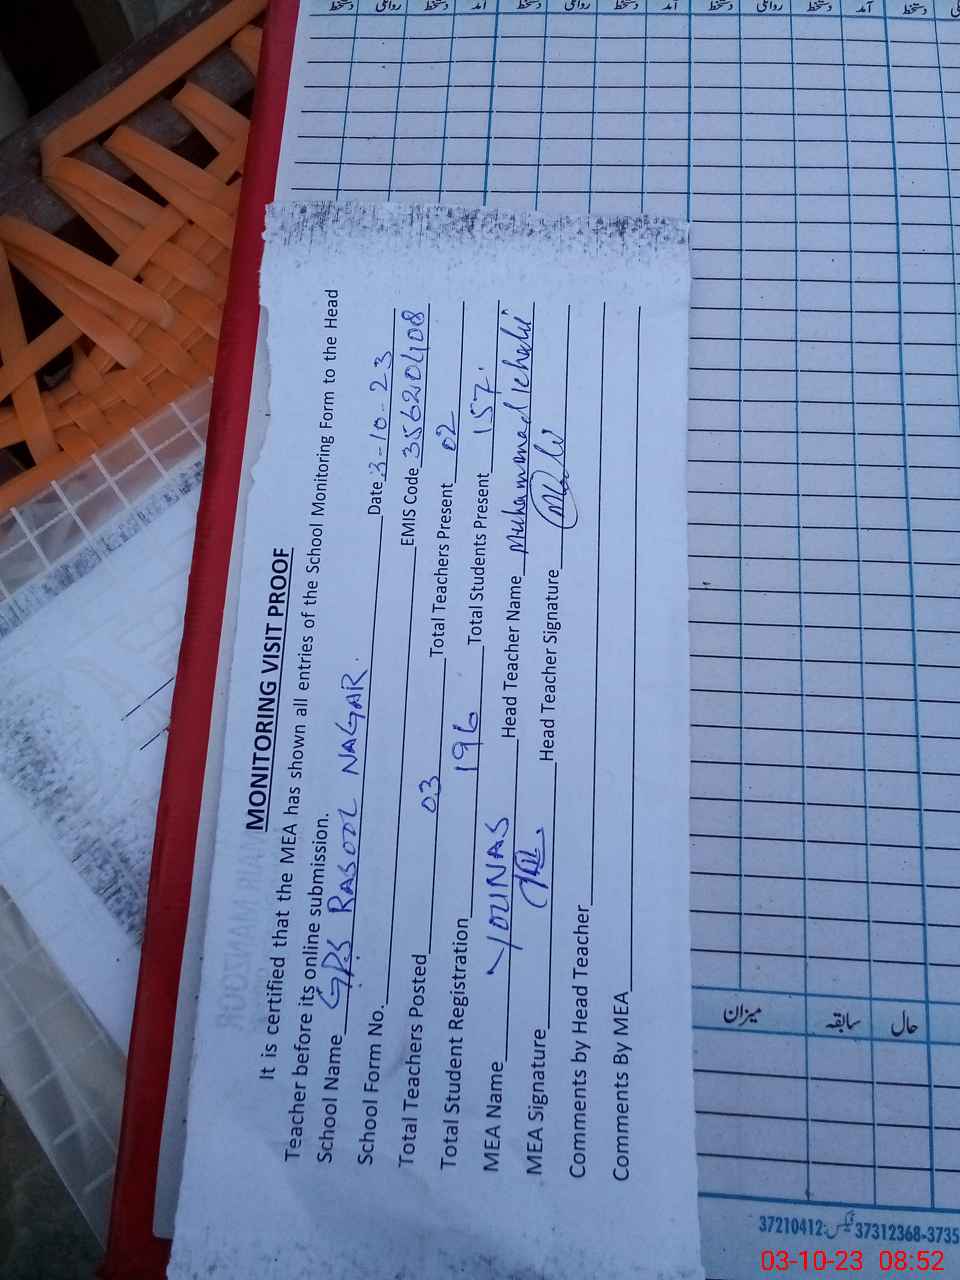 دستخط روانگی دستخط آمد دستخط روانگی دستخط آمد دستخط روانگی دستخط آمد دستخط
MONITORING VISIT PROOF
It is certified that the MEA has shown all entries of the School Monitoring Form to the Head
Teacher before its online submission.
School Name GPS RASOOL NAGAR.
School Form No. Date 3-10-23
EMIS Code 35620408
Total Teachers Posted 03 Total Teachers Present 02
Total Student Registration 196 Total Students Present 157.
MEA Name YOUNAS Head Teacher Name Muhammad
MEA Signature Head Teacher Signature
Comments by Head Teacher
Comments By MEA
میزان سابقہ حال
37210412 فیکس: 37312368-3735
03-10-23 08:52